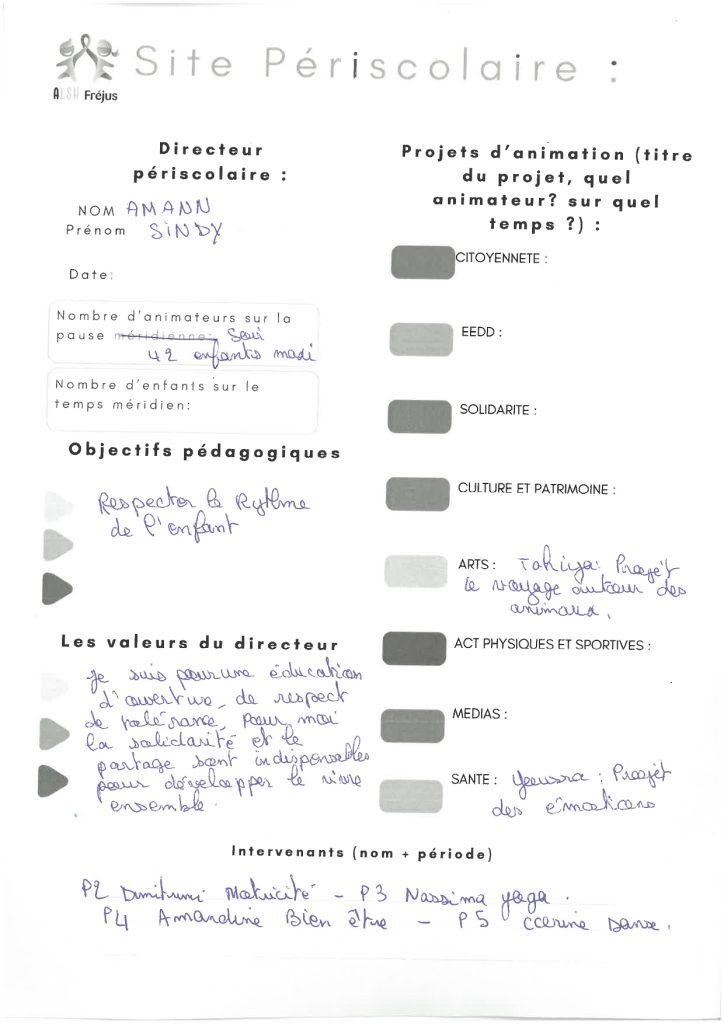 Site Périscolaire :
ALSH Fréjus
Directeur
périscolaire :
NOM AMANN
Prénom SINDY
Date:
Nombre d'animateurs sur la
pause méridienne: Soir
42 enfants midi
Nombre d'enfants sur le
temps méridien:
Objectifs pédagogiques
Respecter le Rytme
de l'enfant
Les valeurs du directeur
Je suis pour une éducation
d'ouverture, de respect
de tolérance, Pour moi
la solidarité et le
partage sont indispensables
pour développer le vivre
ensemble.
Projets d'animation (titre
du projet, quel
animateur? sur quel
temps ?) :
CITOYENNETE :
EEDD :
SOLIDARITE :
CULTURE ET PATRIMOINE :
ARTS : Tahiya: Projet
le voyage autour des
animaux.
ACT PHYSIQUES ET SPORTIVES :
MEDIAS :
SANTE : Youssra : Projet
des émotions
Intervenants (nom + période)
P2 Motricité - P3 Nassima yoga.
P4 Amandine Bien être - P5 Danse.